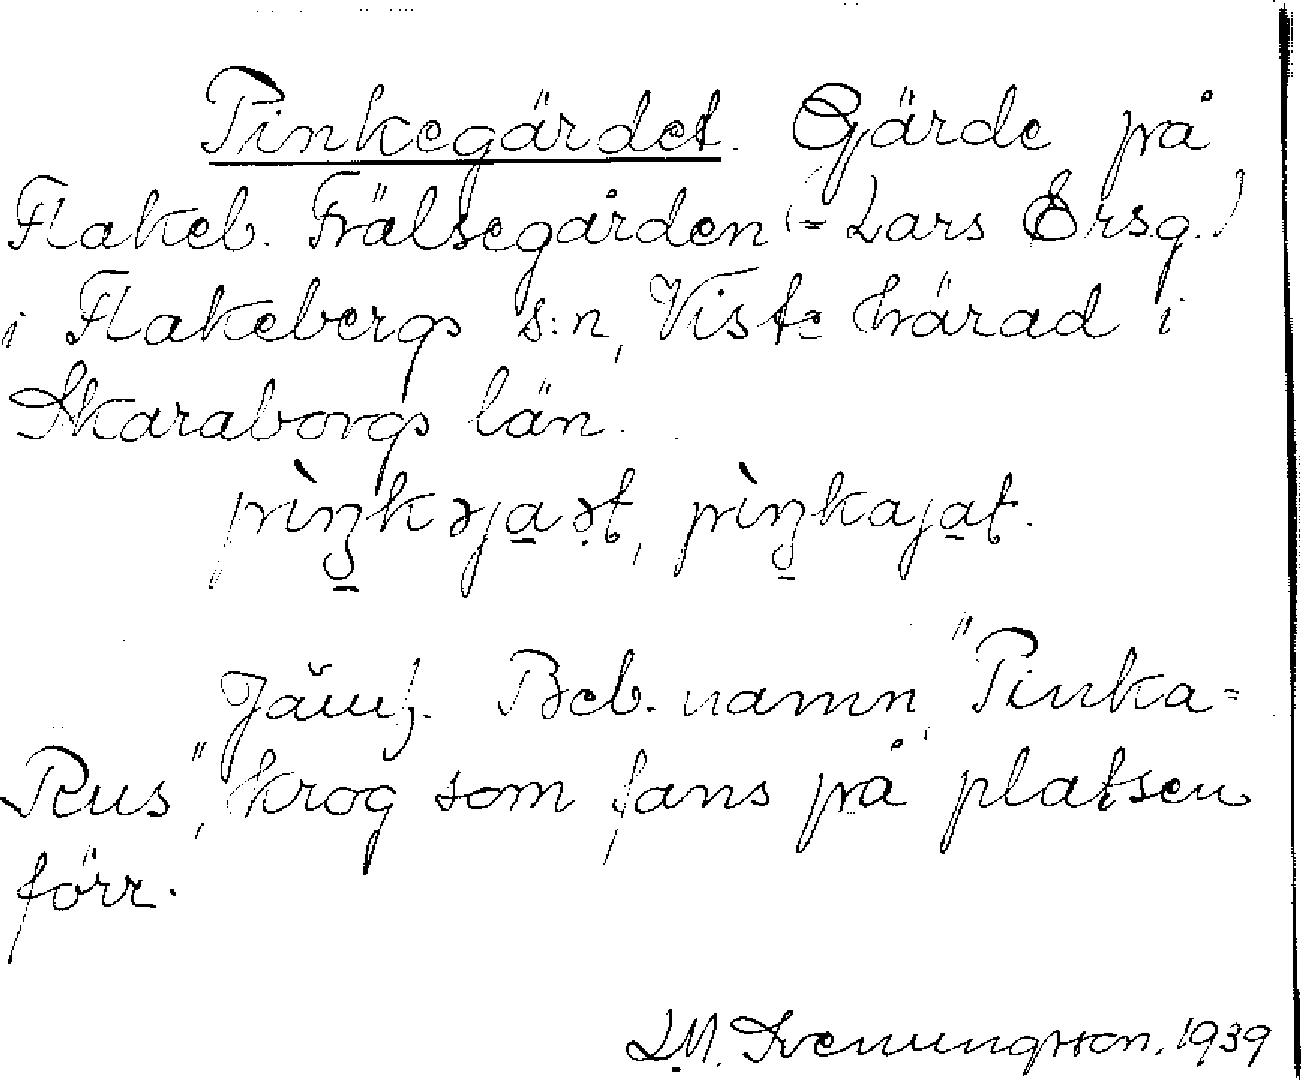 Pinkegärdet. Gärde på
Flakeb. Frälsegården (= Lars Ersg.)
i Flakebergs s:n, Viste härad i
Skaraborgs län.
pìŋkəja̱ə̣t, pìŋkaja̱t.
Jämf. Beb. namn, "Pinka-
Rus", krog som fans på platsen
förr.
L.M. Svenungsson. 1939